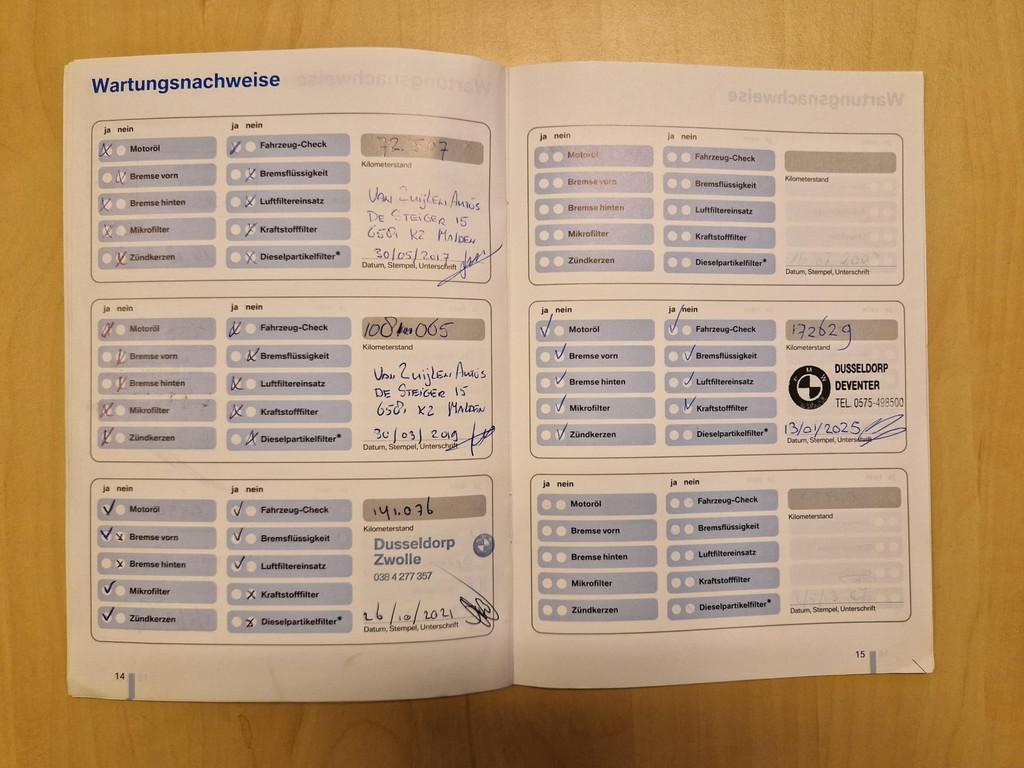 Wartungsnachweise
ja nein
ja nein
Motoröl
Fahrzeug-Check
Bremse vorn
Bremsflüssigkeit
Bremse hinten
Luftfiltereinsatz
Mikrofilter
Kraftstofffilter
Zündkerzen
Dieselpartikelfilter*
Kilometerstand
Van Zuijlen Autos
De Steiger 15
Malden
30/05/2017
Datum, Stempel, Unterschrift
ja nein
ja nein
Motoröl
Fahrzeug-Check
Bremse vorn
Bremsflüssigkeit
Bremse hinten
Luftfiltereinsatz
Mikrofilter
Kraftstofffilter
Zündkerzen
Dieselpartikelfilter*
Kilometerstand
Van Zuijlen Autos
De Steiger 15
Malden
30/03/2019
Datum, Stempel, Unterschrift
ja nein
ja nein
Motoröl
Fahrzeug-Check
Bremse vorn
Bremsflüssigkeit
Bremse hinten
Luftfiltereinsatz
Mikrofilter
Kraftstofffilter
Zündkerzen
Dieselpartikelfilter*
141.076
Kilometerstand
Dusseldorp
Zwolle
038 4 277 357
26/10/2021
Datum, Stempel, Unterschrift
14
ja nein
ja nein
Motoröl
Fahrzeug-Check
Bremse vorn
Bremsflüssigkeit
Bremse hinten
Luftfiltereinsatz
Mikrofilter
Kraftstofffilter
Zündkerzen
Dieselpartikelfilter*
Kilometerstand
Datum, Stempel, Unterschrift
ja nein
ja nein
Motoröl
Fahrzeug-Check
Bremse vorn
Bremsflüssigkeit
Bremse hinten
Luftfiltereinsatz
Mikrofilter
Kraftstofffilter
Zündkerzen
Dieselpartikelfilter*
172629
Kilometerstand
BMW
DUSSELDORP
DEVENTER
TEL. 0575-498500
13/01/2025
Datum, Stempel, Unterschrift
ja nein
ja nein
Motoröl
Fahrzeug-Check
Bremse vorn
Bremsflüssigkeit
Bremse hinten
Luftfiltereinsatz
Mikrofilter
Kraftstofffilter
Zündkerzen
Dieselpartikelfilter*
Kilometerstand
Datum, Stempel, Unterschrift
15